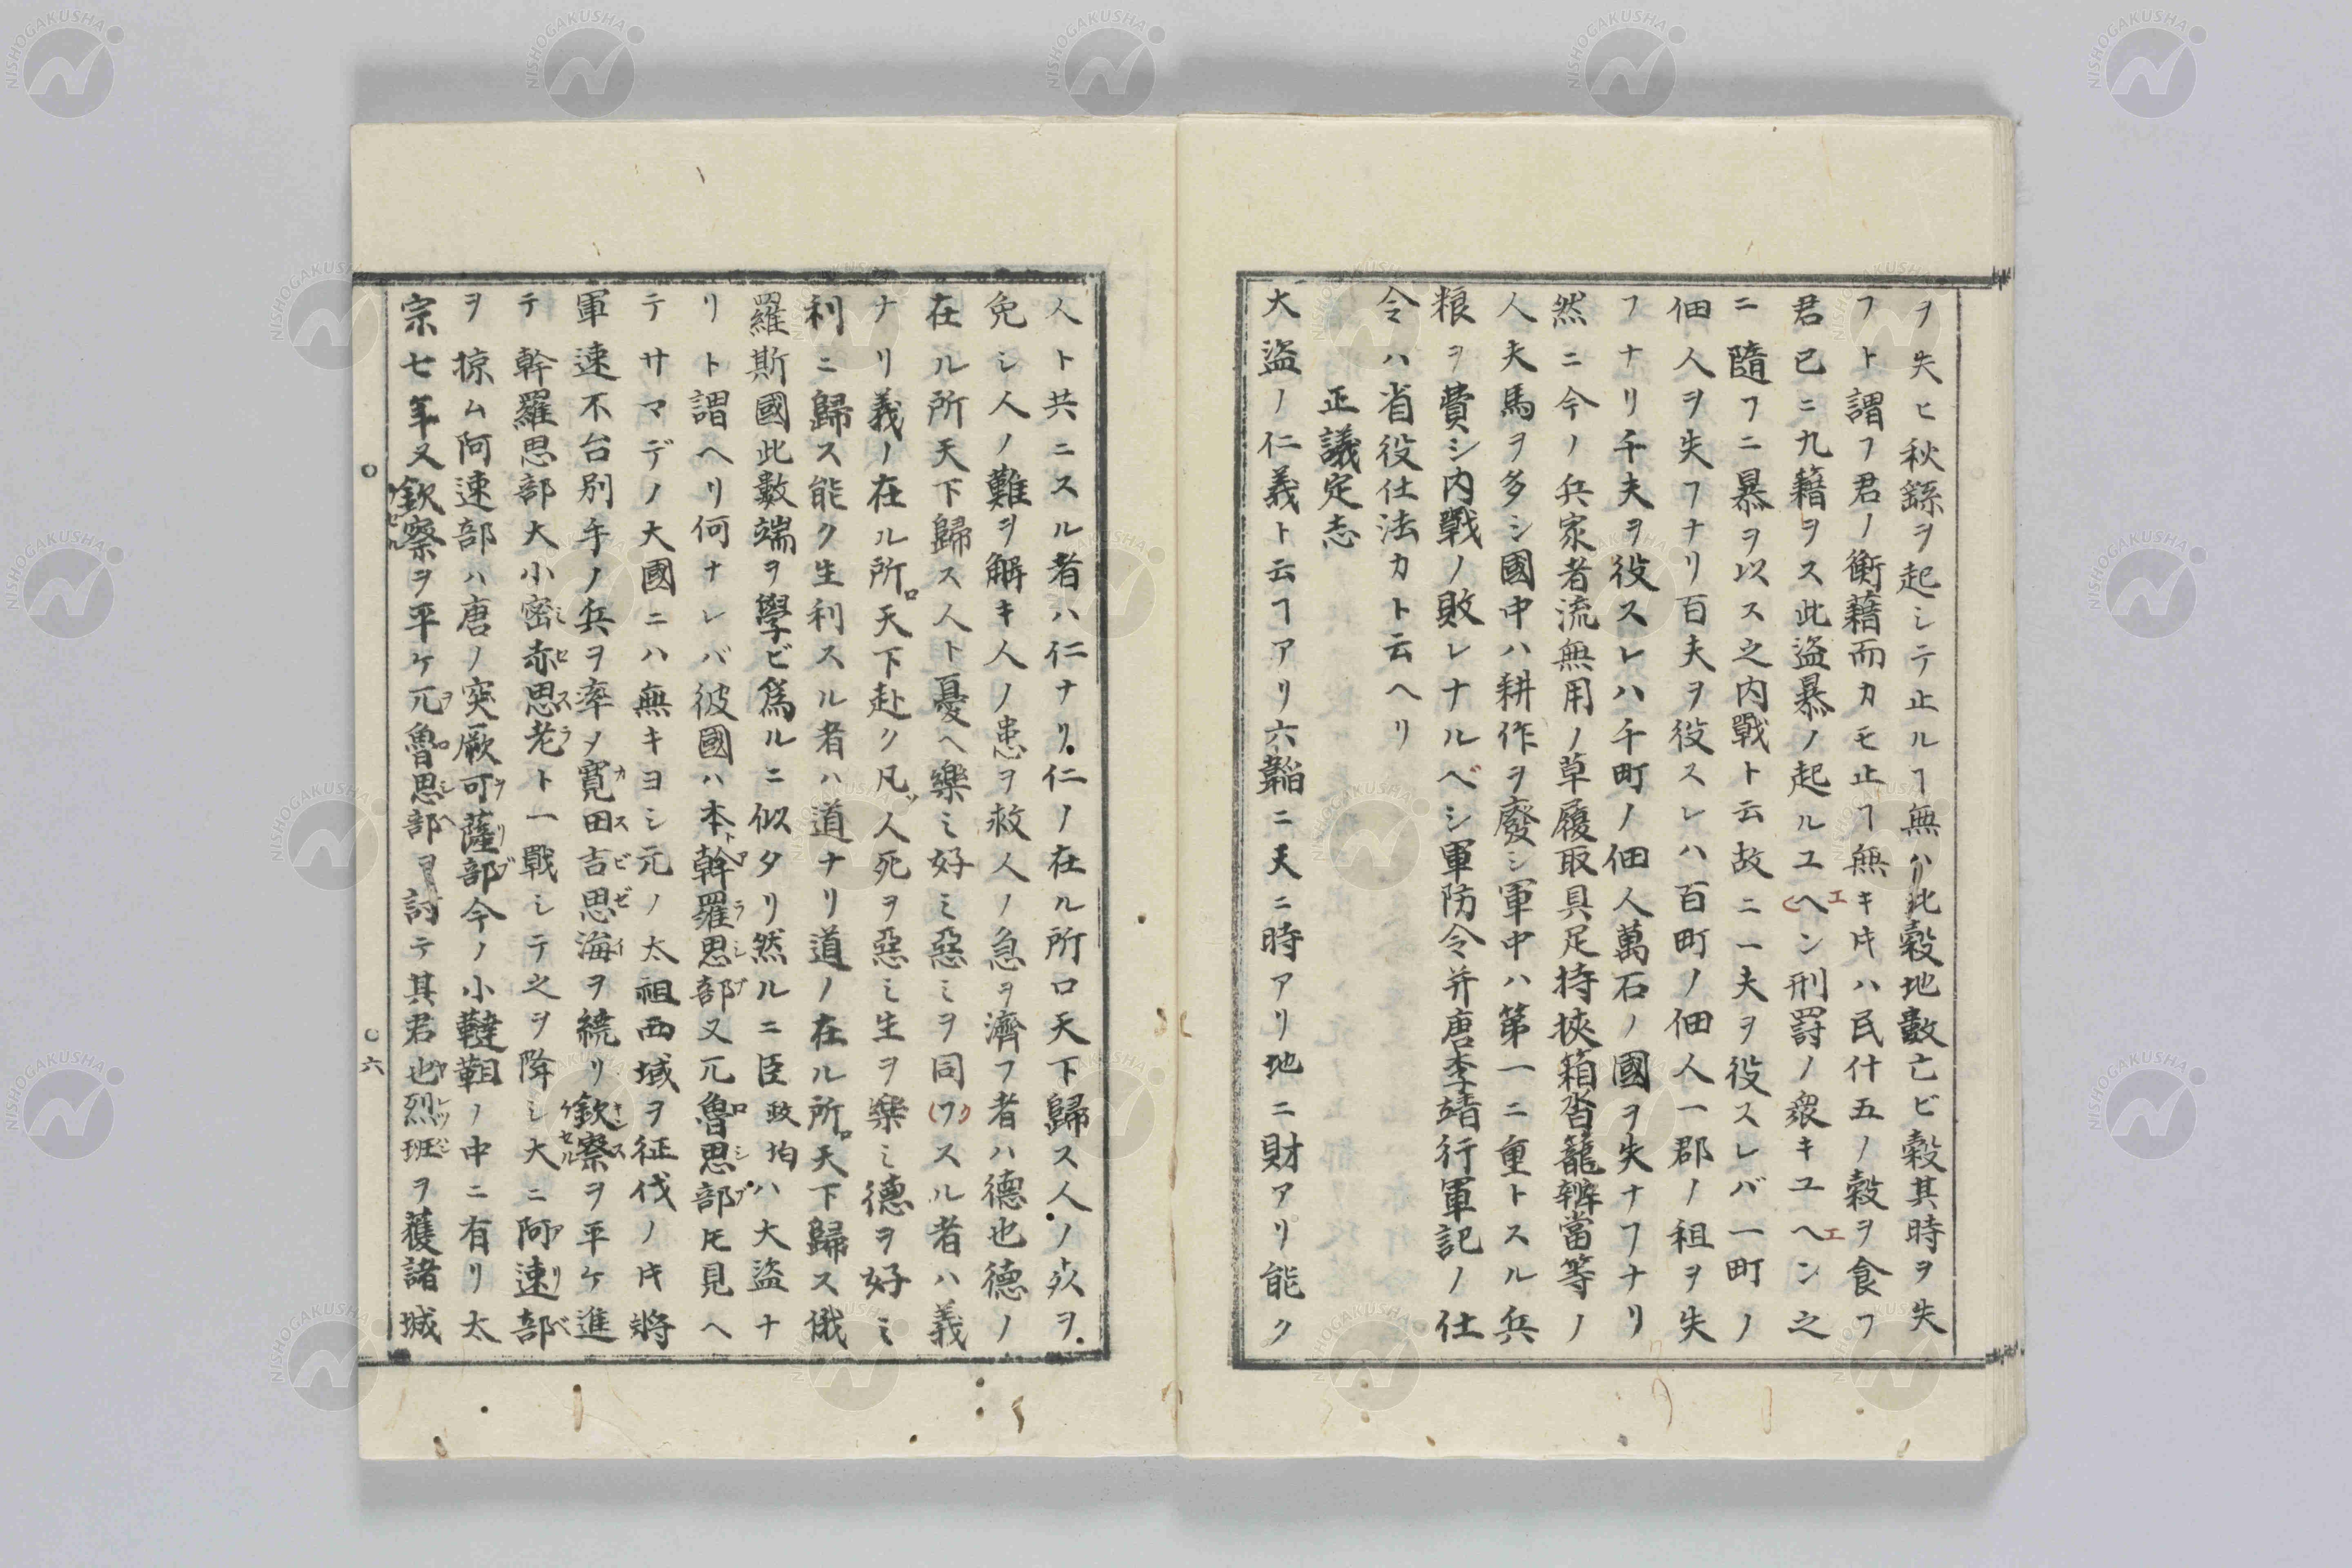 ヲ失ヒ秋繇ヲ起シテ止ルヿ無ハ此穀地數亡ビ穀其時ヲ失
フト謂フ君ノ衡藉而カモ止ヿ無キ𪜈ハ民什五ノ穀ヲ食フ
君已ニ九藉ヲス此盗暴ノ起ルユヘン刑罸ノ衆キユヘン之
ニ隨フニ暴ヲ以ス之内戰ト云故ニ一夫ヲ役スレバ一町ノ
佃人ヲ失フナリ百夫ヲ役スレハ百町ノ佃人一郡ノ租ヲ失
フナリ千夫ヲ役スレハ千町ノ佃人萬石ノ國ヲ失ナフナリ
然ニ今ノ兵家者流無用ノ草履取具足持挾箱沓籠辨當等ノ
人夫馬ヲ多シ國中ハ耕作ヲ廢シ軍中ハ第一ニ重トスル兵
粮ヲ費シ内戰ノ敗レナルベシ軍防令并唐李靖行軍記ノ仕
令ハ省役仕法カト云ヘリ
正議定志
大盗ノ仁義ト云ヿアリ六韜ニ天ニ時アリ地ニ財アリ能ク
人ト共ニスル者ハ仁ナリ仁ノ在ル所ロ天下歸ス人ノ死ヲ
免シ人ノ難ヲ解キ人ノ患ヲ救人ノ急ヲ濟フ者ハ德也德ノ
在ル所天下歸ス人ト憂ヘ樂ミ好ミ惡ミヲ同(フ)スル者ハ義
ナリ義ノ在ル所ロ天下赴ク凡ッ人死ヲ惡ミ生ヲ樂ミ德ヲ好ミ
利ニ歸ス能ク生利スル者ハ道ナリ道ノ在ル所ロ天下歸ス俄
羅斯國此數端ヲ學ビ爲ルニ似タリ然ルニ臣政均ハ大盗ナ
リト謂ヘリ何ナレバ彼國ハ本ト幹羅思部又兀魯思部𪜈見ヘ
テサマデノ大國ニハ無キヨシ元ノ太祖西域ヲ征伐ノ𪜈將
軍速不台別手ノ兵ヲ率ヲ寛田吉思海ヲ繞リ欽察ヲ平ケ進
テ幹羅思部大小密赤思老ト一戰シテ之ヲ降シ大ニ阿速部
ヲ掠ム阿速部ハ唐ノ突厥可薩部今ノ小韃靼ノ中ニ有リ太
宗七年又欽察ヲ平ケ兀魯思部ヲ討テ其君也烈班ヲ獲諸城
六